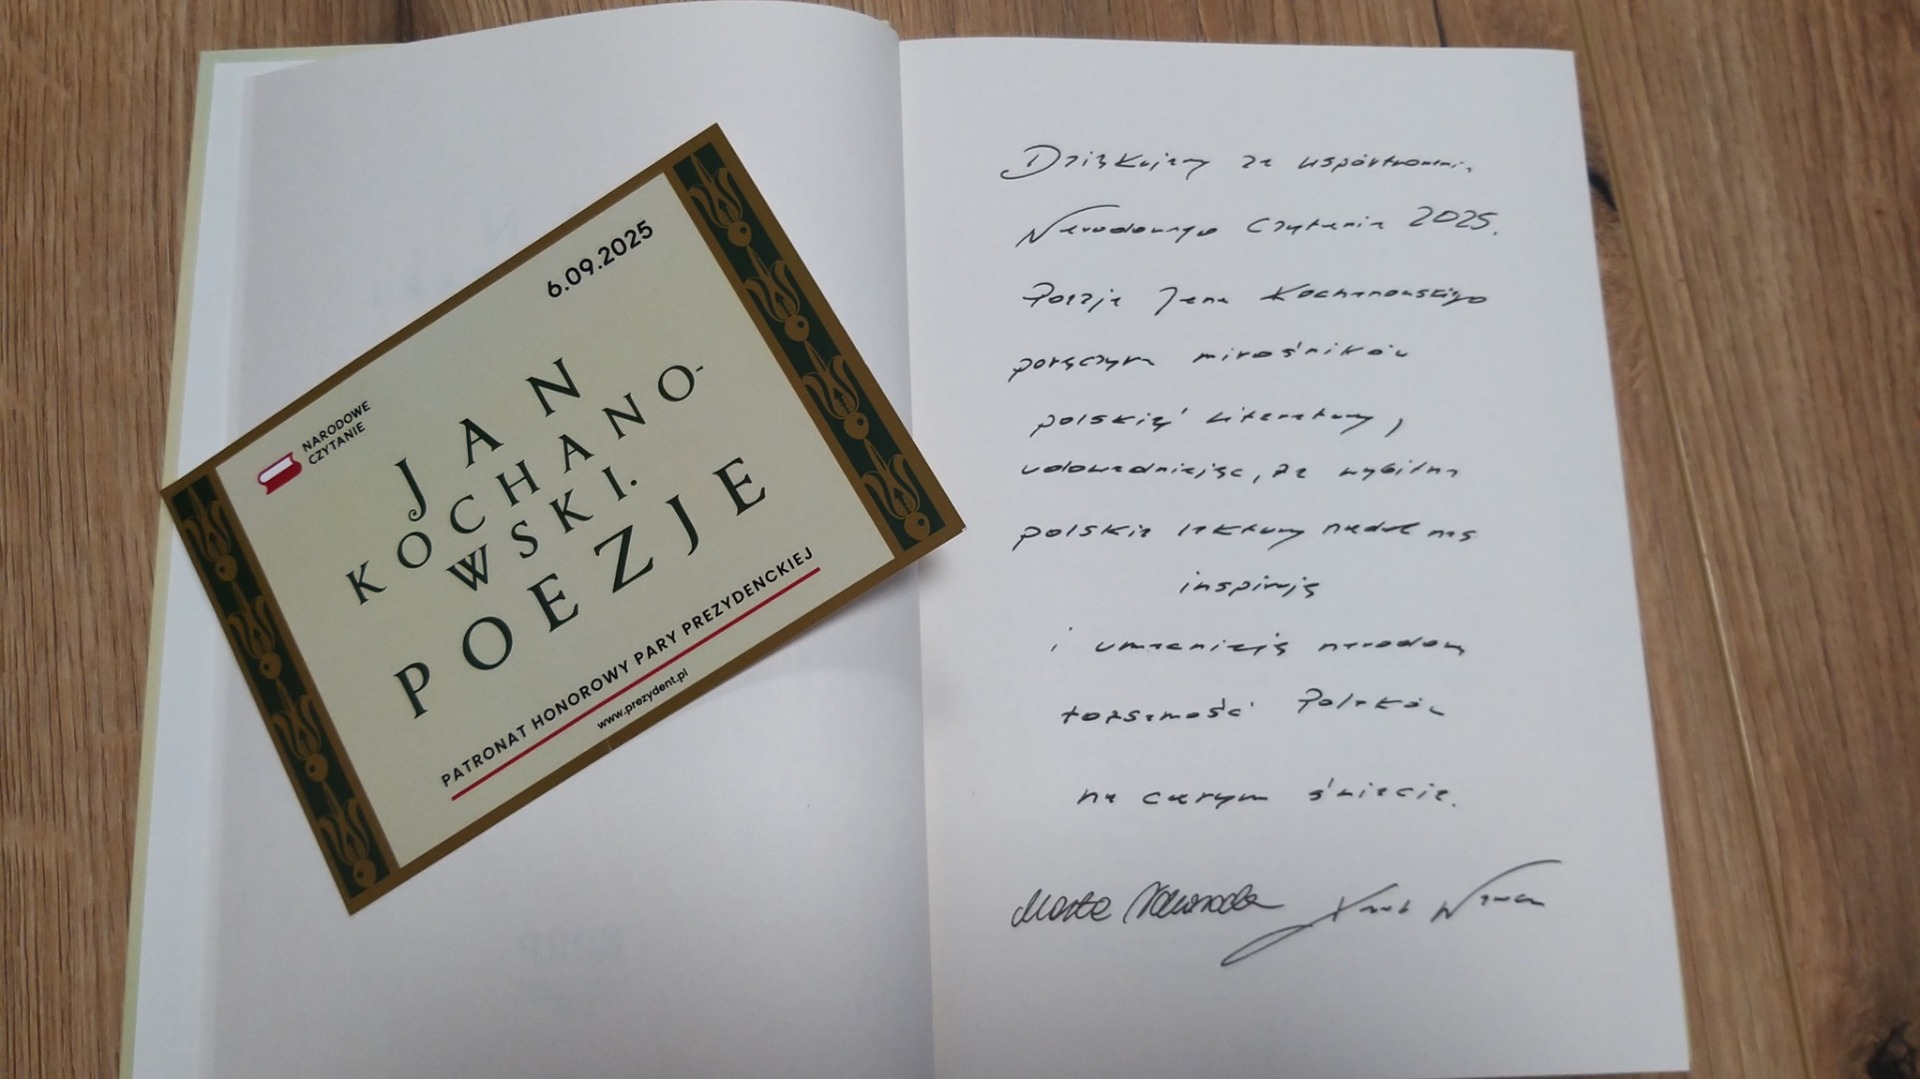 6.09.2025
NARODOWE
CZYTANIE
JAN
KOCHANO-
WSKI.
POEZJE
PATRONAT HONOROWY PARY PREZYDENCKIEJ
www.prezydent.pl
Dziękujemy za współtworzenie
Narodowego Czytania 2025.
Poezje Jana Kochanowskiego
połączyły miłośników
polskiej literatury,
udowadniając, że wybitne
polskie lektury nadal nas
inspirują
i umacniają narodową
tożsamość Polaków
na całym świecie.
Marta Nawrocka Karol Nawrocki